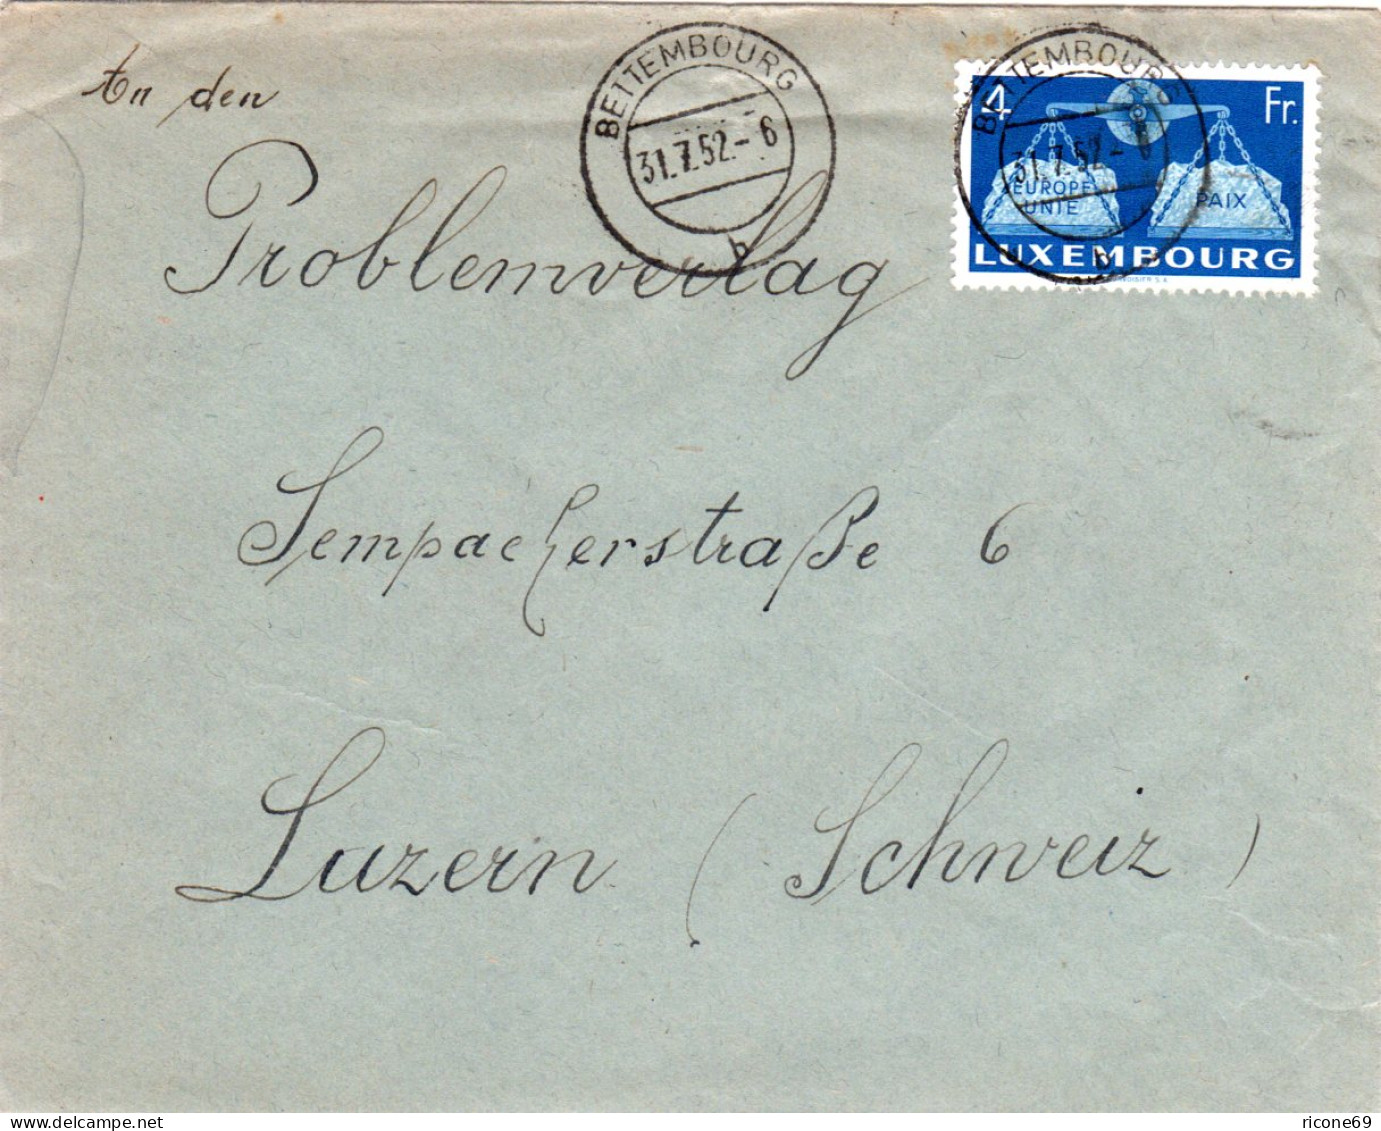 An den
BETTEMBOURG
31.7.52.-6
b
BETTEMBOURG
31.7.52-6
b
4 Fr.
EUROPE
UNIE
PAIX
LUXEMBOURG
Problemverlag
Sempacherstraße 6
Luzern (Schweiz)
delcampe.net
ricone69